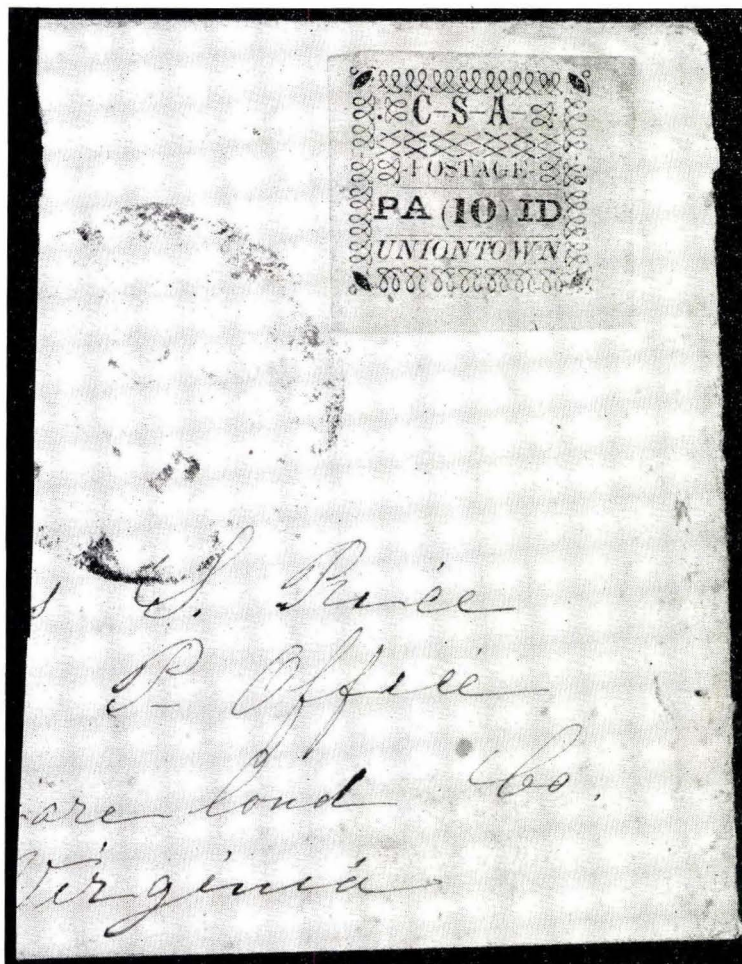 C-S-A
POSTAGE
PA (10) ID
UNIONTOWN
s S. Price
P. Office
land Co.
Virginia